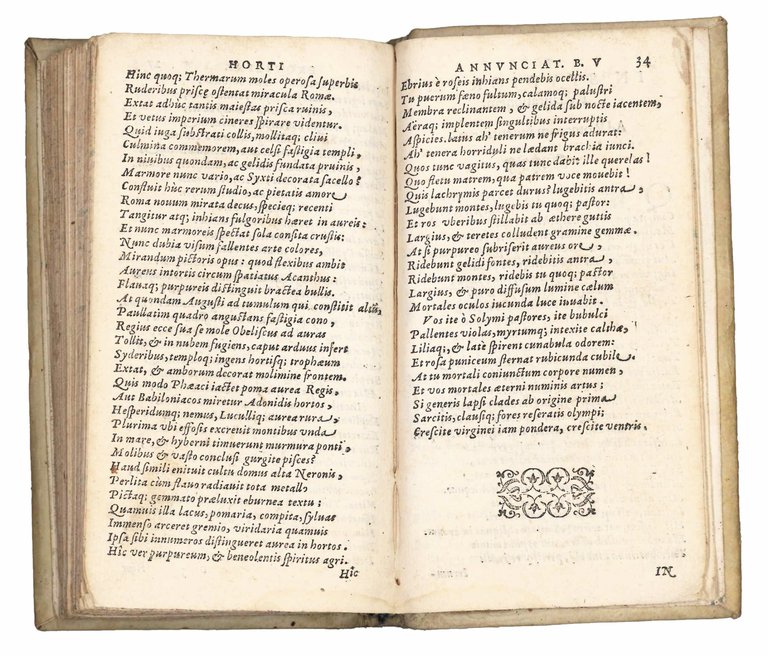 HORTI
Hinc quoq; Thermarum moles operosa superbis
Ruderibus priscę ostentat miracula Romæ.
Extat adhuc tantis maiestas prisca ruinis,
Et vetus imperium cineres spirare videntur.
Quid iuga substrati collis, mollitaq; cliui
Culmina commemorem, aut celsi fastigia templi,
In niuibus quondam, ac gelidis fundata pruinis,
Marmore nunc vario, ac Syxti decorata sacello?
Constuit hùc rerum studio, ac pietatis amore
Roma nouum mirata decus, specieq; recenti
Tangitur atq; inhians fulgoribus hæret in aureis:
Et nunc marmoreis spectat sola consita crustis:
Nunc dubia visum fallentes arte colores,
Mirandum pictoris opus: quod flexibus ambit
Aureus intortis circum spatiatus Acanthus:
Flauaq; purpureis distinguit bractea bullis.
At quondam Augusti ad tumulum qui constitit altũ,
Paullatim quadro angustans fastigia cono,
Regius ecce sua se mole Obeliscus ad auras
Tollit, & in nubem fugiens, caput arduus infert
Syderibus, temploq; ingens hortisq; trophæum
Extat, & amborum decorat molimine frontem.
Quis modo Phæaci iactet poma aurea Regis,
Aut Babiloniacos miretur Adonidis hortos,
Hesperidumq; nemus, Luculliq; aurea rura,
Plurima vbi effossis excreuit montibus vnda
In mare, & hyberni timuerunt murmura ponti
Molibus & vasto conclusi gurgite pisces?
Haud simili enituit cultu domus alta Neronis,
Perlita cùm flauo radiauit tota metallo
Pictaq; gemmato præluxit eburnea textu;
Quamuis illa lacus, pomaria, compita, syluas
Immenso arceret gremio, viridaria quamuis
Ipsa sibi innumeros distingueret aurea in hortos.
Hic ver purpureum, & beneolentis spiritus agri.
Hic
ANNVNCIAT. B. V 34
Ebrius è roseis inhians pendebis ocellis.
Tu puerum fæno fultum, calamoq; palustri
Membra reclinantem, & gelida sub nocte iacentem,
Aëraq; implentem singultibus interruptis
Aspicies. laius ah' tenerum ne frigus adurat:
Ah' tenera horriduli ne lædant brachia iunci.
Quos tunc vagitus, quas tunc dabit ille querelas!
Quo fletu matrem, qua patrem voce mouebit!
Quis lachrymis parcet durus? lugebitis antra,
Lugebunt montes, lugebis tu quoq; pastor:
Et ros vberibus stillabit ab æthere guttis
Largius, & teretes colludent gramine gemmæ.
At si purpureo subriserit aureus ore,
Ridebunt gelidi fontes, ridebitis antra,
Ridebunt montes, ridebis tu quoq; pastor
Largius, & puro diffusum lumine cælum
Mortales oculos iucunda luce iuuabit.
Vos ite ò Solymi pastores, ite bubulci
Pallentes violas, myrtumq; intexite calthæ,
Liliaq;, & latè spirent cunabula odorem:
Et rosa puniceum sternat rubicunda cubile.
At tu mortali coniunctum corpore numen,
Et vos mortales æterni numinis artus:
Si generis lapsi clades ab origine prima
Sarcitis, clausisq; fores reseratis olympi;
Crescite virginei iam pondera, crescite ventris.
IN